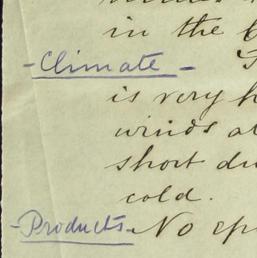 in the
-Climate-
is very
winds
short
cold.
-Products- No